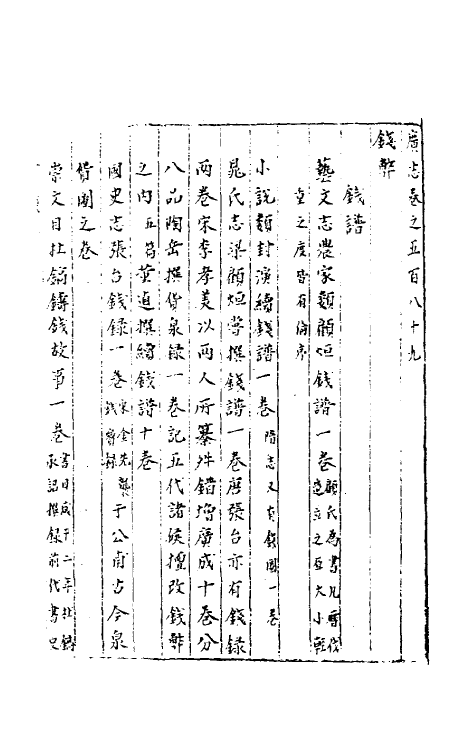 廣志卷之五百八十九
錢幣
錢譜
藝文志農家類顧烜錢譜一卷顧氏為書凡歷代造立之原大小輕
重之度皆有倫序
小說類封演續錢譜一卷隋志又有錢圖一卷
晁氏志梁顧烜嘗撰錢譜一卷唐張台亦有錢錄
兩卷宋李孝美以兩人所纂舛錯增廣成十卷分
八品陶岳撰貨泉錄一卷記五代諸侯擅改錢幣
之由五篇董逌撰續錢譜十卷
國史志張台錢錄一卷宋金光襲錢寶錄于公甫古今泉
貨圖之卷
崇文目杜鎬鑄錢故事一卷書目咸平二年杜鎬承詔撰錄前代書史